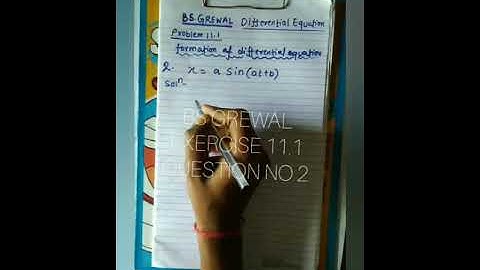 BS GREWAL Differential Equation
Problem 11.1
formation of differential equation
2. x = a sin(at+b)
Solⁿ-
BS GREWAL
EXERCISE 11.1
QUESTION NO 2